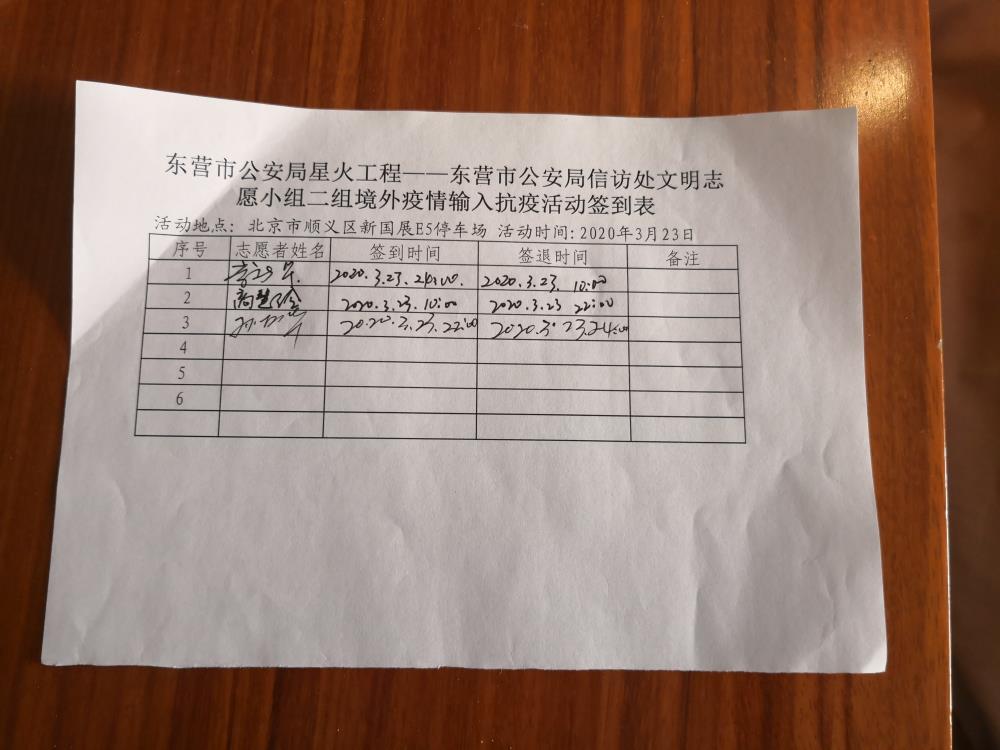 东营市公安局星火工程——东营市公安局信访处文明志
愿小组二组境外疫情输入抗疫活动签到表
活动地点：北京市顺义区新国展E5停车场 活动时间：2020年3月23日
序号 志愿者姓名 签到时间 签退时间 备注
1 2020.3.23.24:00. 2020.3.23. 10:00
2 2020.3.23.10:00 2020.3.23 22:00
3 2020.3.23.22:00 2020.3.23.24:00
4
5
6